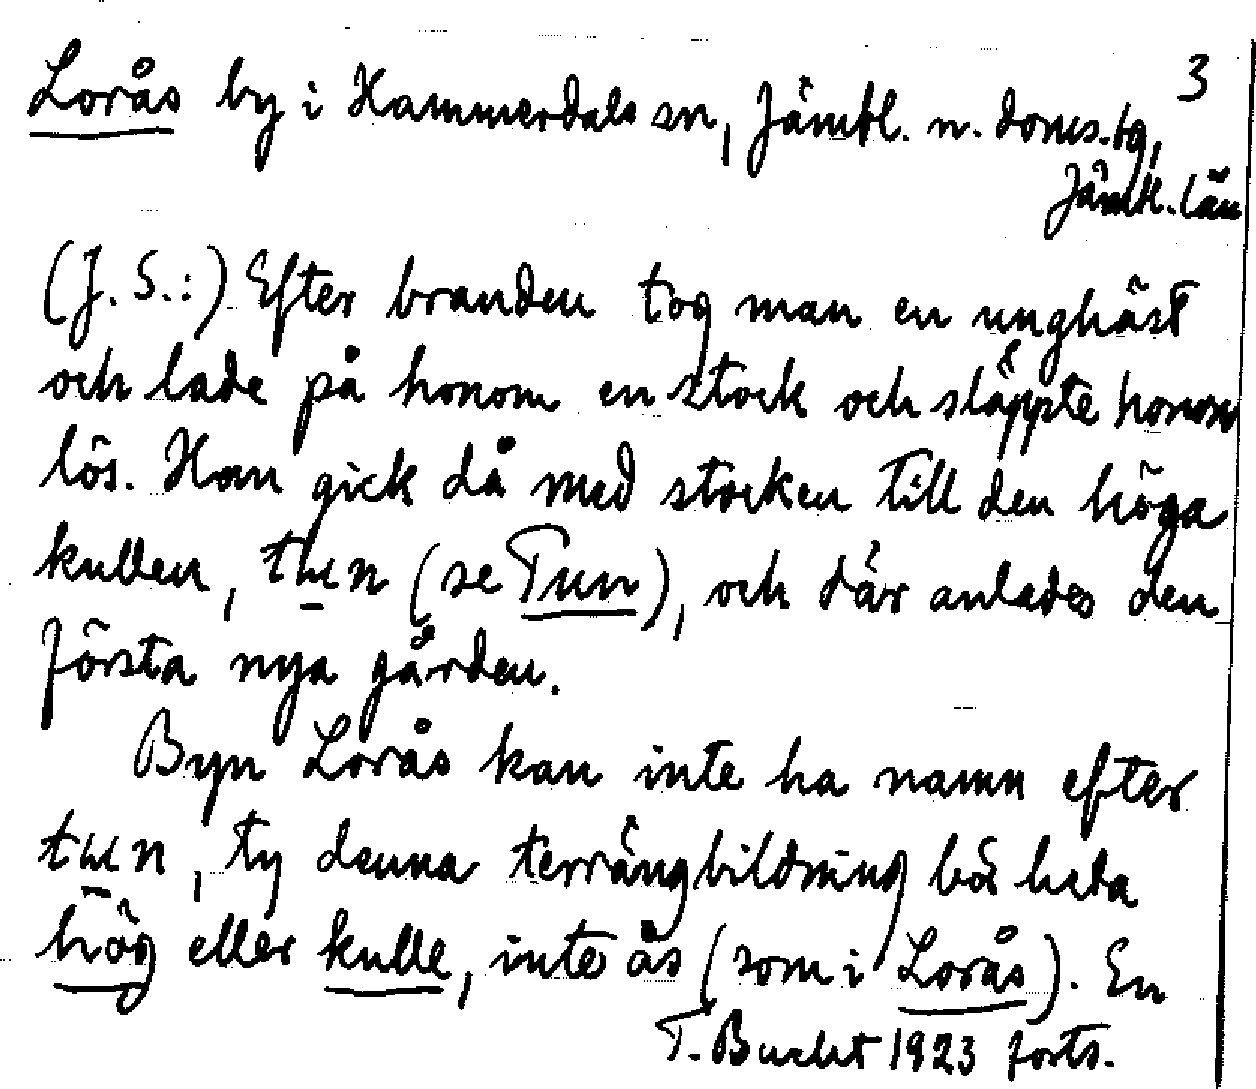 3
Lorås by i Hammerdals sn, Jämtl. n. doms.tg,
Jämtl. län
(J. S.:) Efter branden tog man en unghäst
och lade på honom en stock och släppte honom
lös. Han gick då med stocken till den höga
kullen, tʉn (se Tun), och där anlades den
första nya gården.
Byn Lorås kan inte ha namn efter
tʉn, ty denna terrängbildning bör heta
hög eller kulle, inte ås (som i Lorås). En
T. Bucht 1923 forts.